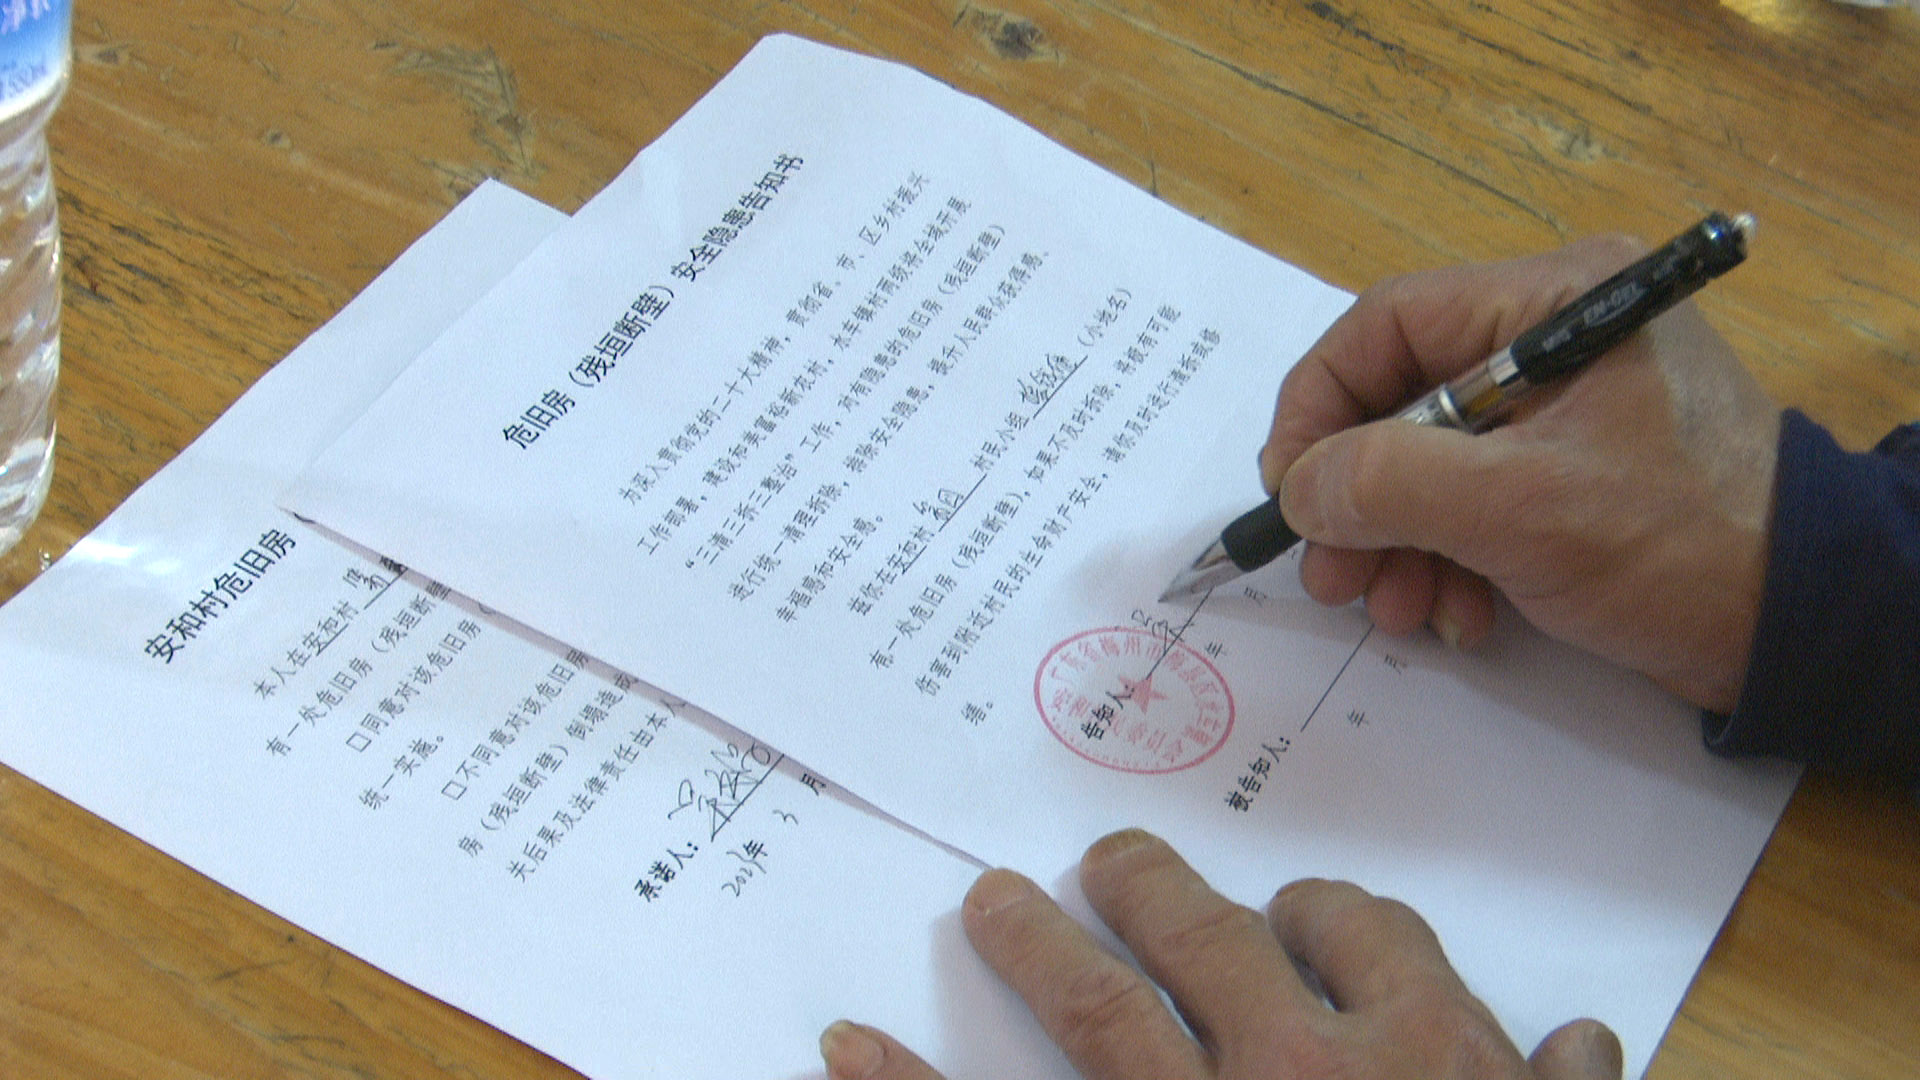 危旧房（残垣断壁）安全隐患告知书
为深入贯彻党的二十大精神，贯彻省、市、区乡村振兴
工作部署，建设和美富裕新农村，水车镇村两级将全域开展
“三清三拆三整治”工作，对有隐患的危旧房（残垣断壁）
进行统一清理拆除，排除安全隐患，提升人民群众获得感、
幸福感和安全感。
兹你在安和村 村民小组 （小地名）
有一处危旧房（残垣断壁），如果不及时拆除，将极有可能
伤害到附近村民的生命财产安全，请你及时进行清拆或修
缮。
告知人：
年 月
被告知人：
年 月
安和村危旧房
本人在安和村
有一处危旧房（残垣断壁
口同意对该危旧房（
统一实施。
口不同意对该危旧房
房（残垣断壁）倒塌造成
关后果及法律责任由本人
承诺人：
2023年 3 月